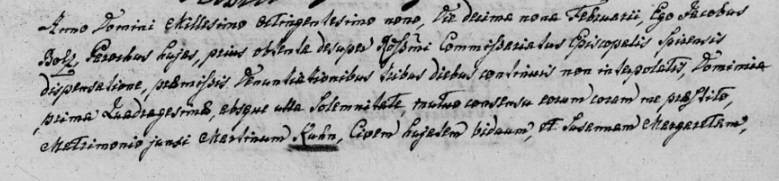 Anno Domini Millesimo octingentesimo nono, Die decima nona Februarii, Ego Jacobus
Bolz, Parochus hujas, prius obtenta desuper Rdssmi Commissariatus Episcopalis Spirensis
dispensatione, præmissis Denuntiationibus tribus diebus continuis non interpolatis, Dominica
prima Quadragesimæ, absque ulla Solemnitate, mutuo consensu eorum coram me præstito,
Matrimonio junxi Martinum Kuhn, Civem hujatem viduum, et Susannam Margaretam,